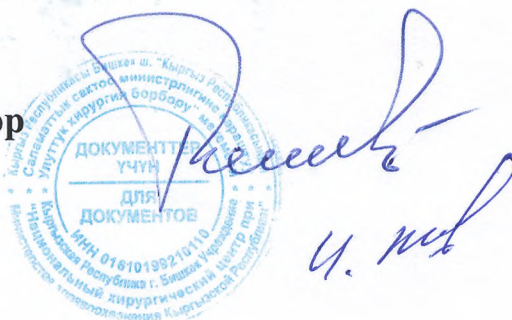 ор
Кыргыз Республикасы Бишкек ш. "Кыргыз Республикасынын
Саламаттык сактоо министрлигине караштуу
Улуттук хирургия борбору"
ДОКУМЕНТТЕР
ҮЧҮН
ДЛЯ
ДОКУМЕНТОВ
ИНН 01610199210110
Кыргызская Республика г. Бишкек Учреждение
"Национальный хирургический центр при
Министерстве здравоохранения Кыргызской Республики"